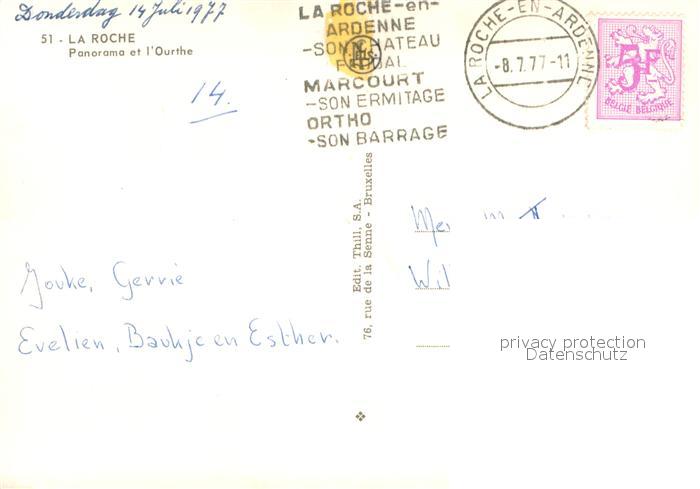 Donderdag 14 Juli 1977
51 - LA ROCHE
Panorama et l'Ourthe
14.
LA ROCHE-en-
ARDENNE
-SON CHATEAU
FEODAL
MARCOURT
-SON ERMITAGE
ORTHO
-SON BARRAGE
LA ROCHE-EN-ARDENNE
-8.7.77-11
5F
BELGIË BELGIQUE
Edit. Thill, S.A.
76, rue de la Senne - Bruxelles
Jouke, Gerrie
Evelien, Baukje en Esther.
privacy protection
Datenschutz